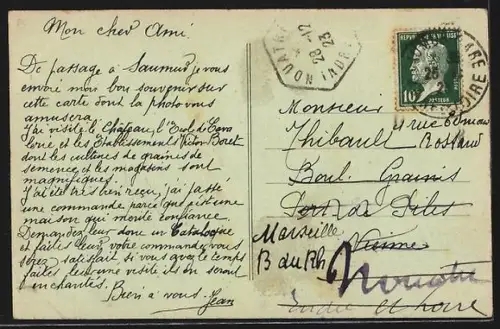 Mon cher Ami.
De passage à Saumur je vous
envoie mon bon souvenir sur
cette carte dont la photo vous
amusera.
J'ai visité le Château, l'Ecole de Cava
lerie et les Etablissements Boret
dont les cultures de graines de
semence et les magasins sont
magnifiques.
J'ai été très bien reçu, j'ai passé
une commande parce que c'est une
maison qui mérite confiance.
Demandez leur donc un Catalogue
et faites leur votre commande vous
serez satisfait si vous avez le temps
faites leur une visite ils en seront
enchantés.
Bien à vous. Jean
NOUATRE
28-12
23
10
Monsieur
Thibault
4 rue Edmond
Rostand
Boul. Grains
Port de Piles
Vienne
Marseille
B du Rh
Nouatre
Indre et Loire